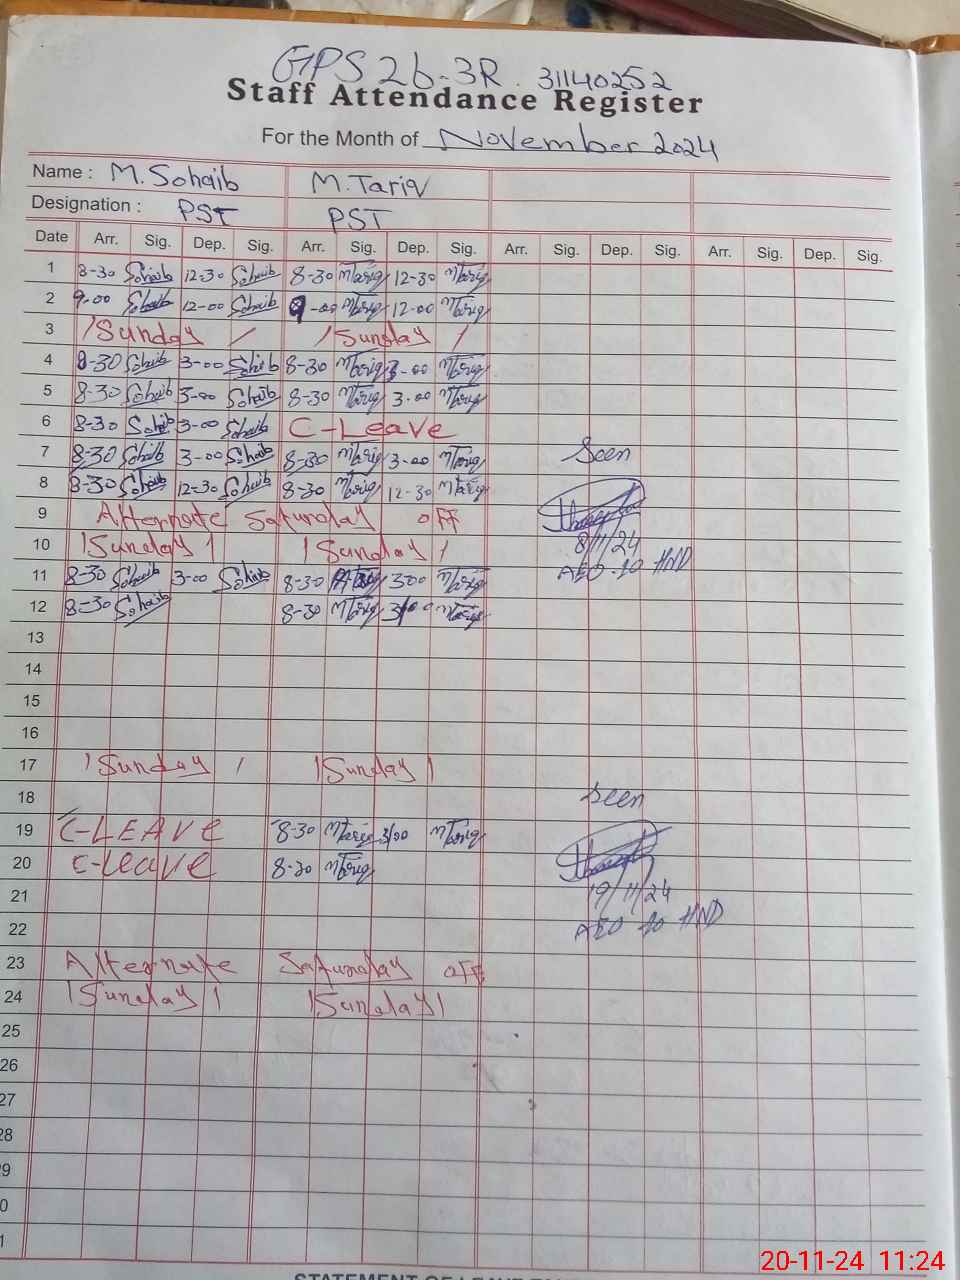 GPS 26-3R. 31140252
Staff Attendance Register
For the Month of November 2024
Name : M. Sohaib M. Tariq
Designation : PST PST
Date Arr. Sig. Dep. Sig. Arr. Sig. Dep. Sig. Arr. Sig. Dep. Sig. Arr. Sig. Dep. Sig.
1 8-30 Sohaib 12-30 Sohaib 8-30 MTariq 12-30 MTariq
2 9.00 Sohaib 12-00 Sohaib 9-00 MTariq 12-00 MTariq
3 / Sunday / / Sunday /
4 8-30 Sohaib 3-00 Sohaib 8-30 MTariq 3-00 MTariq
5 8-30 Sohaib 3-00 Sohaib 8-30 MTariq 3.00 MTariq
6 8-30 Sohaib 3-00 Sohaib C-Leave
7 8-30 Sohaib 3-00 Sohaib 8-30 MTariq 3-00 MTariq Seen
8 8-30 Sohaib 12-30 Sohaib 8-30 MTariq 12-30 MTariq
9 Alternate Saturday OFF
10 / Sunday / / Sunday / 8/11/24
11 8-30 Sohaib 3-00 Sohaib 8-30 300 MTariq AEO-20 HND
12 8-30 Sohaib 8-30 MTariq 3/00 MTariq
13
14
15
16
17 / Sunday / / Sunday /
18 Seen
19 C-LEAVE 8-30 MTariq 3/00 MTariq
20 C-Leave 8-30 MTariq
21 19/11/24
22 AEO 20 HND
23 Alternate Saturday OFF
24 / Sunday / / Sunday /
25
26
27
28
9
0
1
20-11-24 11:24